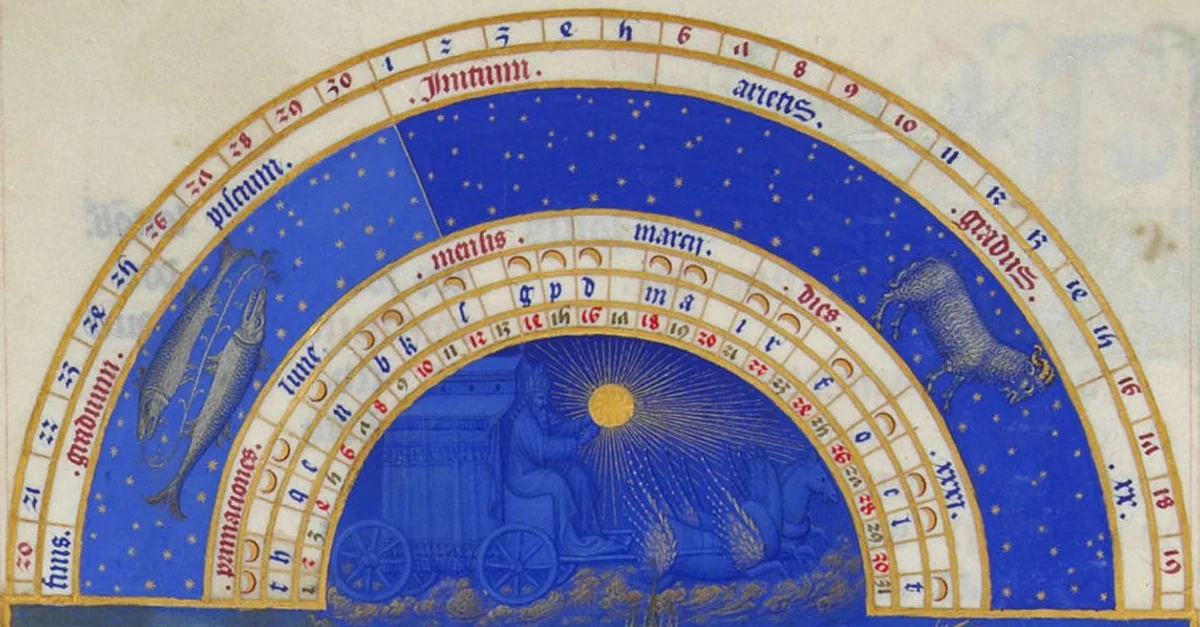 20 21 22 23 24 25 26 27 28 29 30 1 2 3 4 5 6 7 8 9 10 11 12 13 14 15 16 17 18 19
finis. .graduum. piscium. .Initium. arietis. .gradus. .xx.
.primaciones. lune. .mensis. marcii. .dies. .xxxi.
t h q e n b k ſ g p d m a i r f o c l f
2 3 4 5 6 7 8 9 10 11 12 13 14 15 16 17 18 19 20 21 22 23 24 25 26 27 28 29 30 31